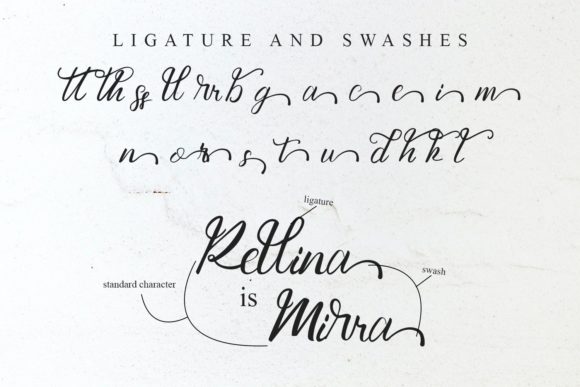 LIGATURE AND SWASHES
tt th ss ll rr b g a c e i m
n o r s t u d h k l
ligature
Rellina
standard character
swash
is
Mirra